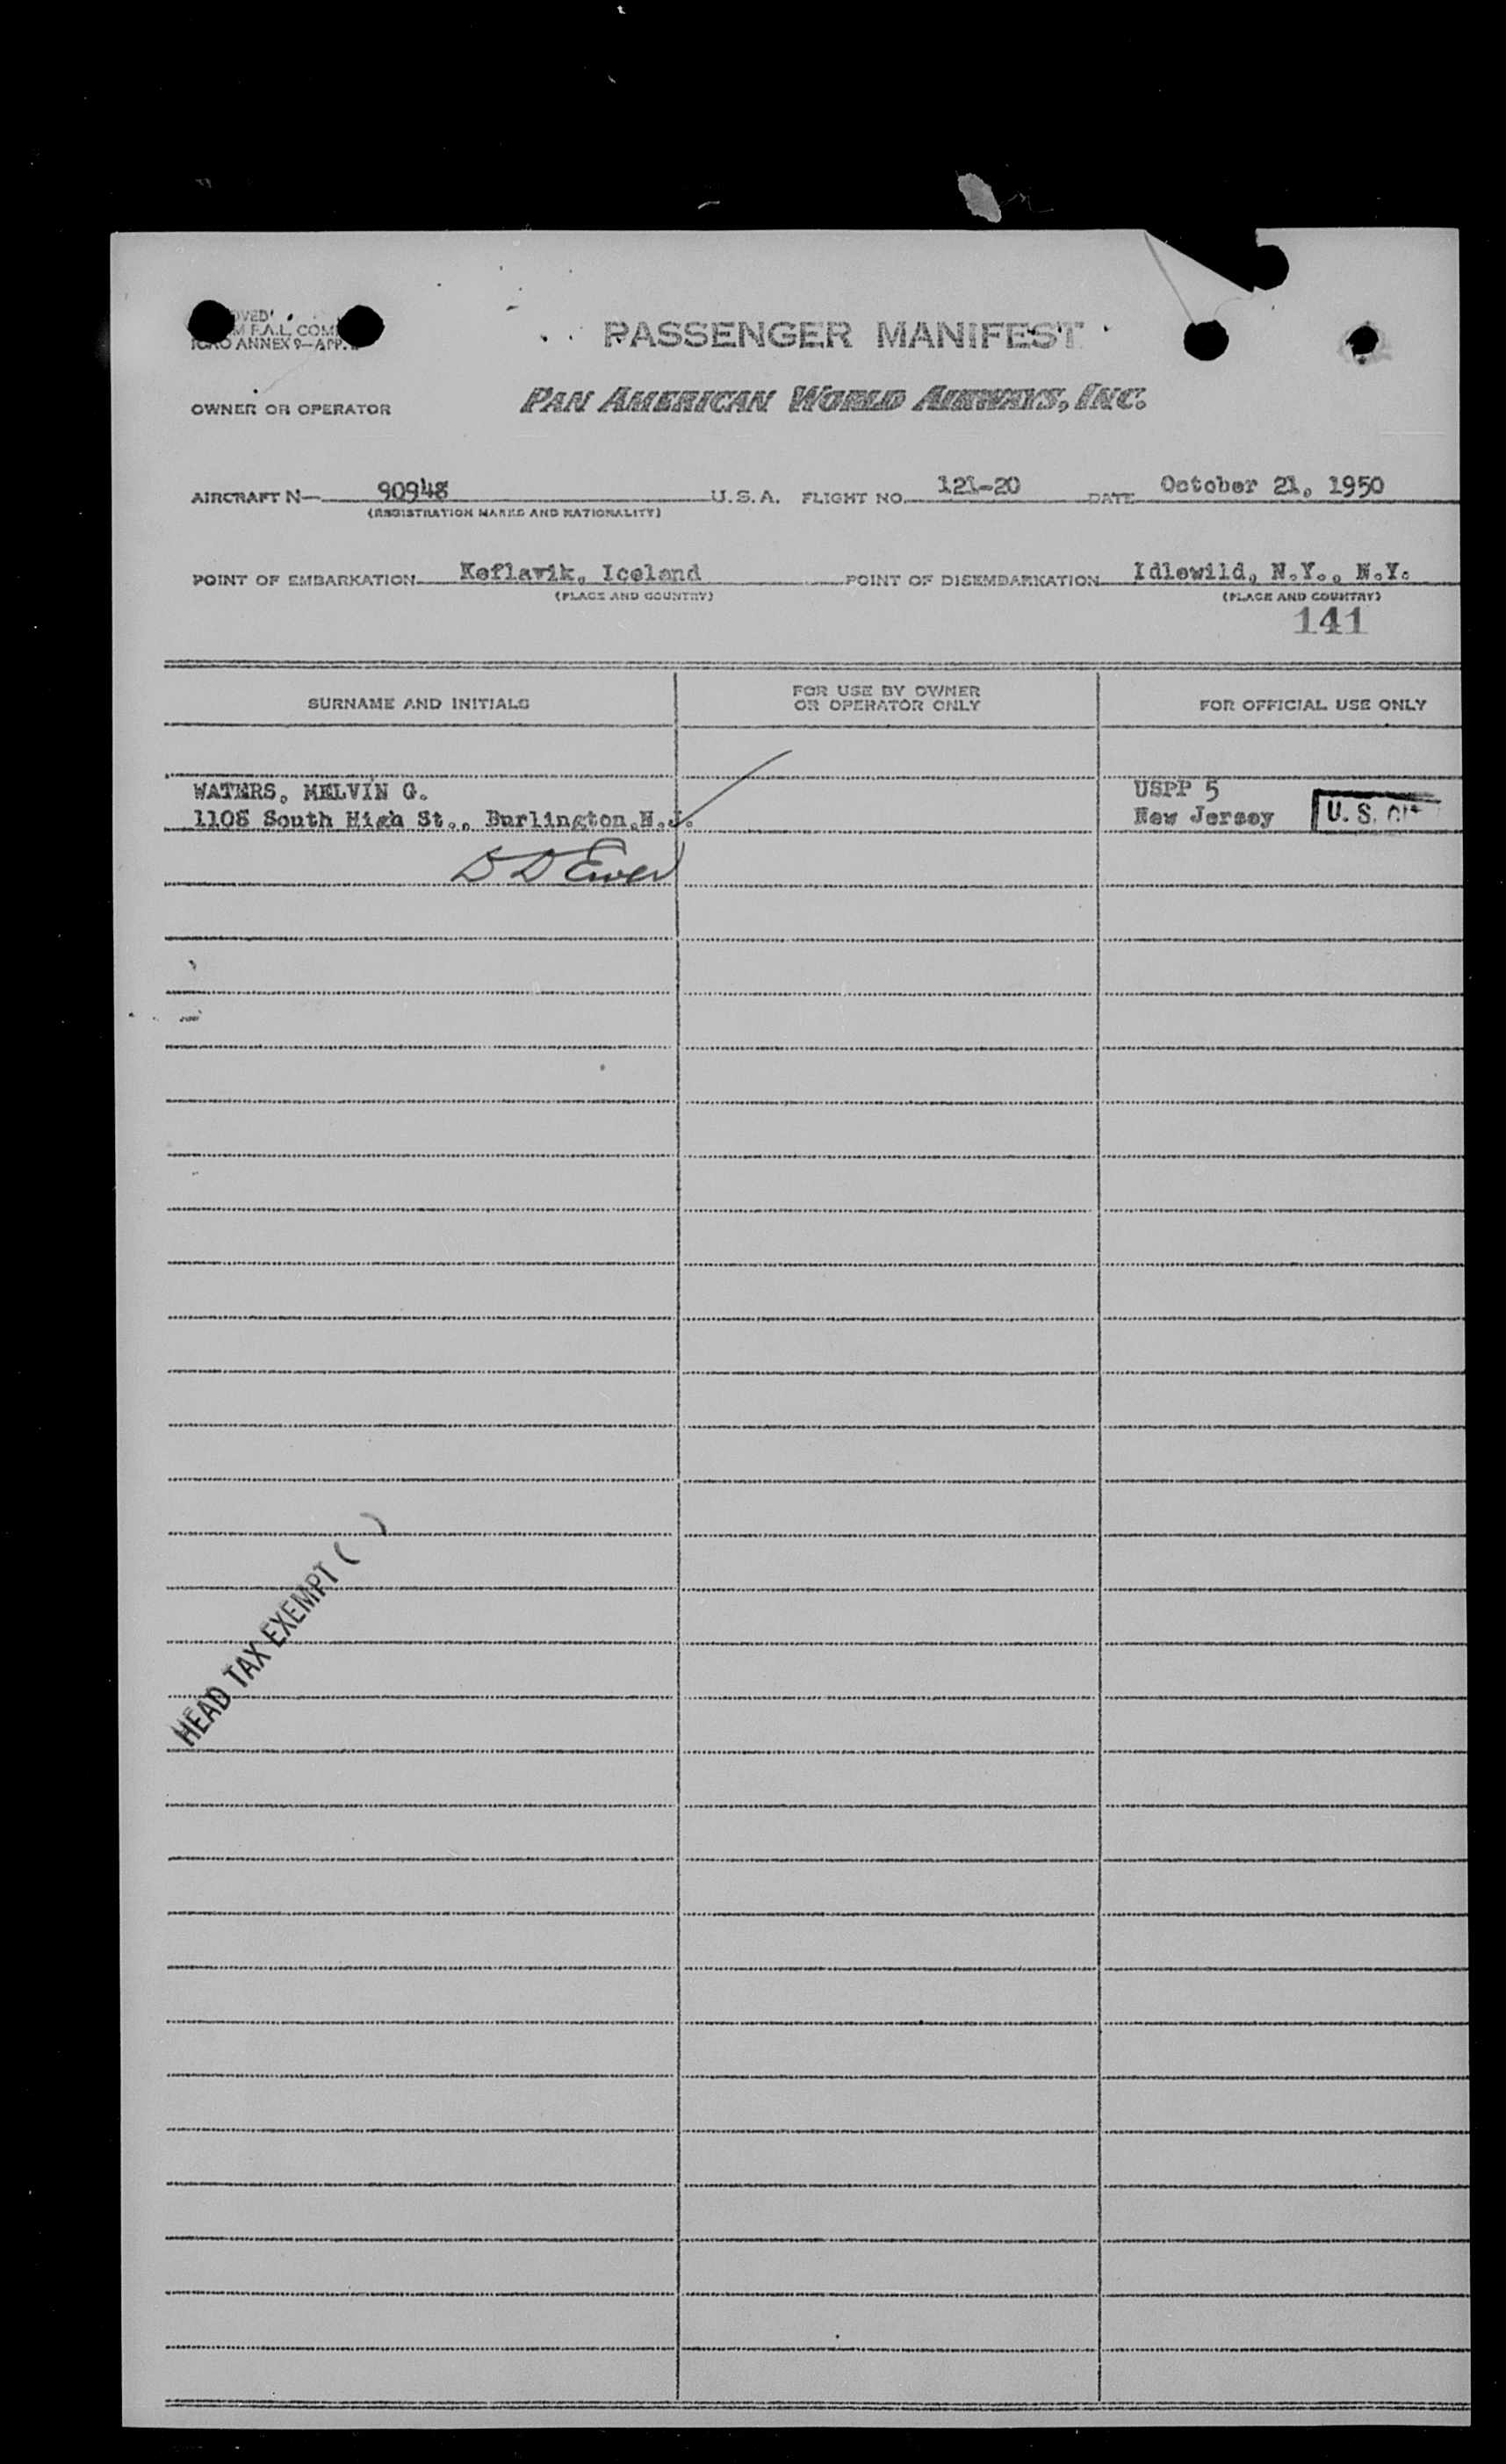 OVED
M F.A.L. COM
ICAO ANNEX 9—APP.
PASSENGER MANIFEST
OWNER OR OPERATOR
PAN AMERICAN WORLD AIRWAYS, INC.
AIRCRAFT N— 90948 U.S.A. FLIGHT NO. 121-20 DATE October 21, 1950
(REGISTRATION MARKS AND NATIONALITY)
POINT OF EMBARKATION Keflavik, Iceland POINT OF DISEMBARKATION Idlewild, N.Y., N.Y.
(PLACE AND COUNTRY) (PLACE AND COUNTRY)
141
SURNAME AND INITIALS FOR USE BY OWNER OR OPERATOR ONLY FOR OFFICIAL USE ONLY
WATERS, MELVIN G. USPP 5
1108 South High St., Burlington,N.J. New Jersey U. S.
HEAD TAX EXEMPT ( )